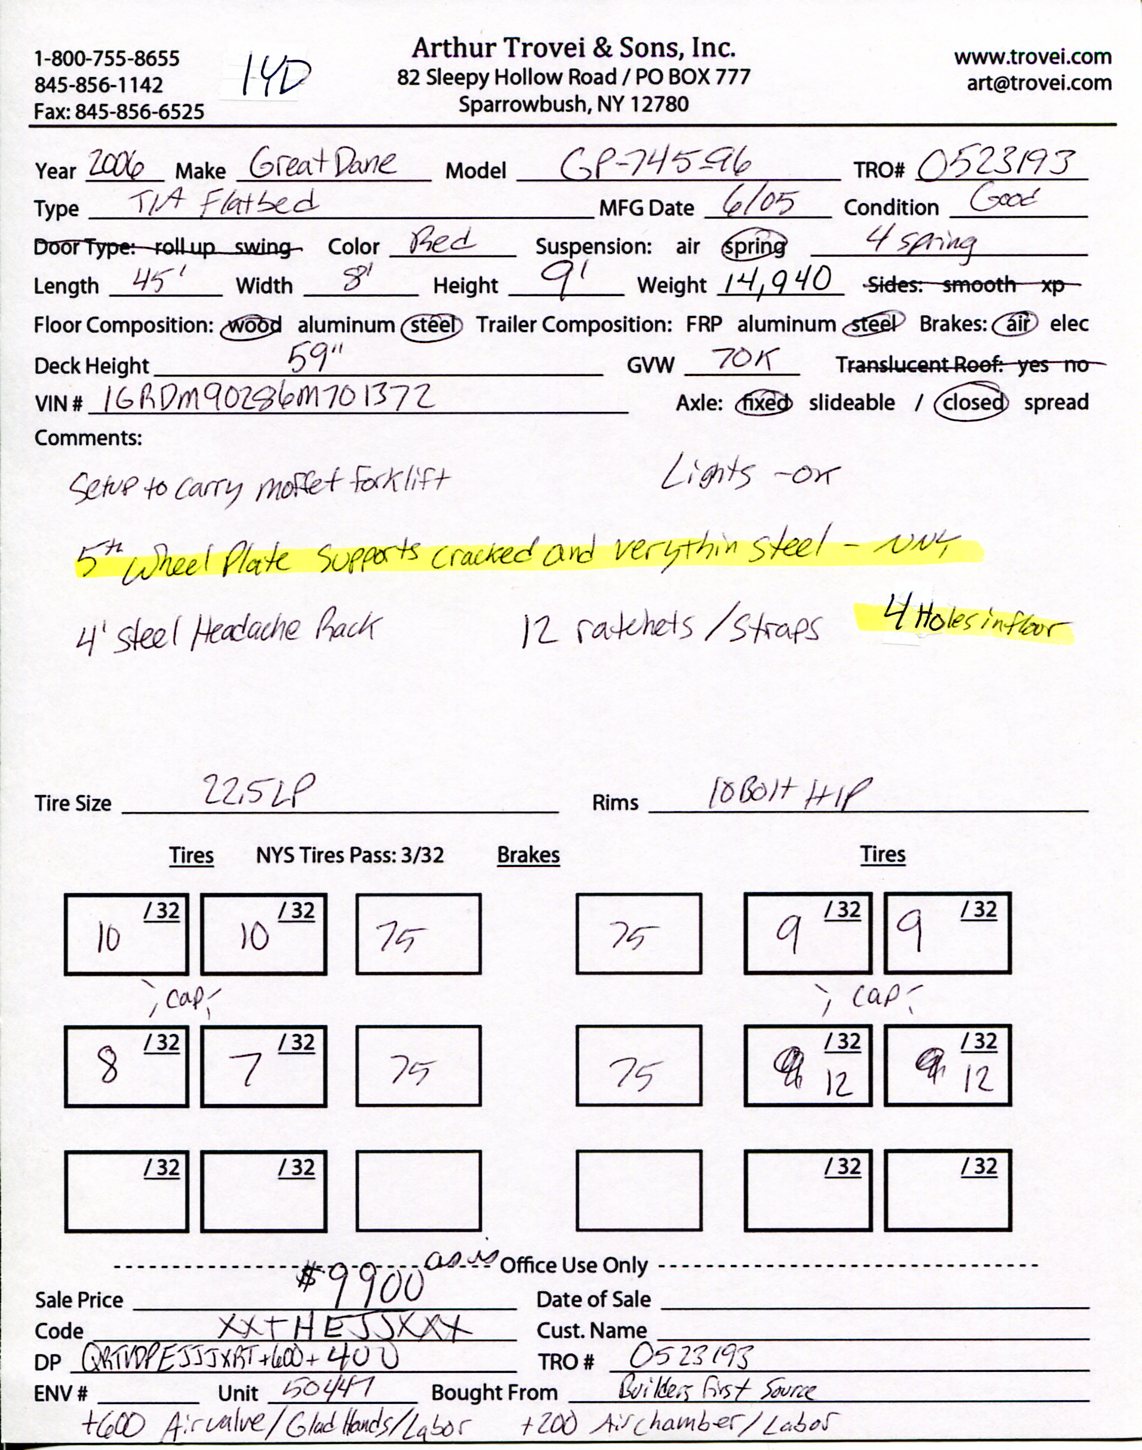 Arthur Trovei & Sons, Inc.
1-800-755-8655 14D www.trovei.com
845-856-1142 82 Sleepy Hollow Road / PO BOX 777 art@trovei.com
Fax: 845-856-6525 Sparrowbush, NY 12780
Year 2006 Make Great Dane Model GP-745-96 TRO# 0523193
Type T/A Flatbed MFG Date 6/05 Condition Good
Door Type: roll up swing Color Red Suspension: air spring 4 spring
Length 45' Width 8' Height 9' Weight 14,940 Sides: smooth xp
Floor Composition: wood aluminum steel Trailer Composition: FRP aluminum steel Brakes: air elec
Deck Height 59" GVW 70K Translucent Roof: yes no
VIN # 1GRDM90286M701372 Axle: fixed slideable / closed spread
Comments:
Setup to carry moffet forklift Lights - OK
5th Wheel Plate Supports cracked and very thin steel -
4' steel Headache Rack 12 ratchets / straps 4 Holes in floor
Tire Size 22.5 LP Rims 10 Bolt H/P
Tires NYS Tires Pass: 3/32 Brakes Tires
10 /32 10 /32 75 75 9 /32 9 /32
cap cap
8 /32 7 /32 75 75 12 /32 12 /32
/32 /32 /32 /32
as is Office Use Only
Sale Price $9900 Date of Sale
Code XXTHEJJXXX Cust. Name
DP +600+400 TRO # 0523193
ENV # Unit 50447 Bought From Builders First Source
+600 Air valve / Glad Hands / Labor +200 Air chamber / Labor